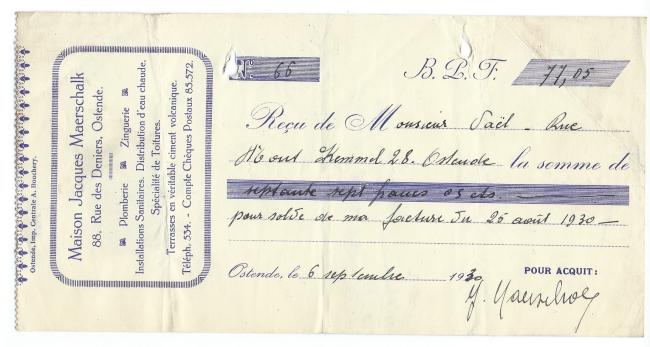 Maison Jacques Maerschalk
88, Rue des Deniers, Ostende.
Plomberie Zinguerie
Installations Sanitaires. Distribution d'eau chaude.
Spécialité de Toitures.
Terrasses en véritable ciment volcanique.
Téléph. 534. - Compte Chèques Postaux 85.572.
Ostende, Imp. Centrale A. Bouchery.
No 66 B. P. F. 77,05
Reçu de Monsieur Saël - Rue
Mont Kemmel 28. Ostende la somme de
septante sept francs 05 cts. -
pour solde de ma facture du 26 août 1930 -
Ostende, le 6 septembre 1930
POUR ACQUIT :
J. Maerschalk